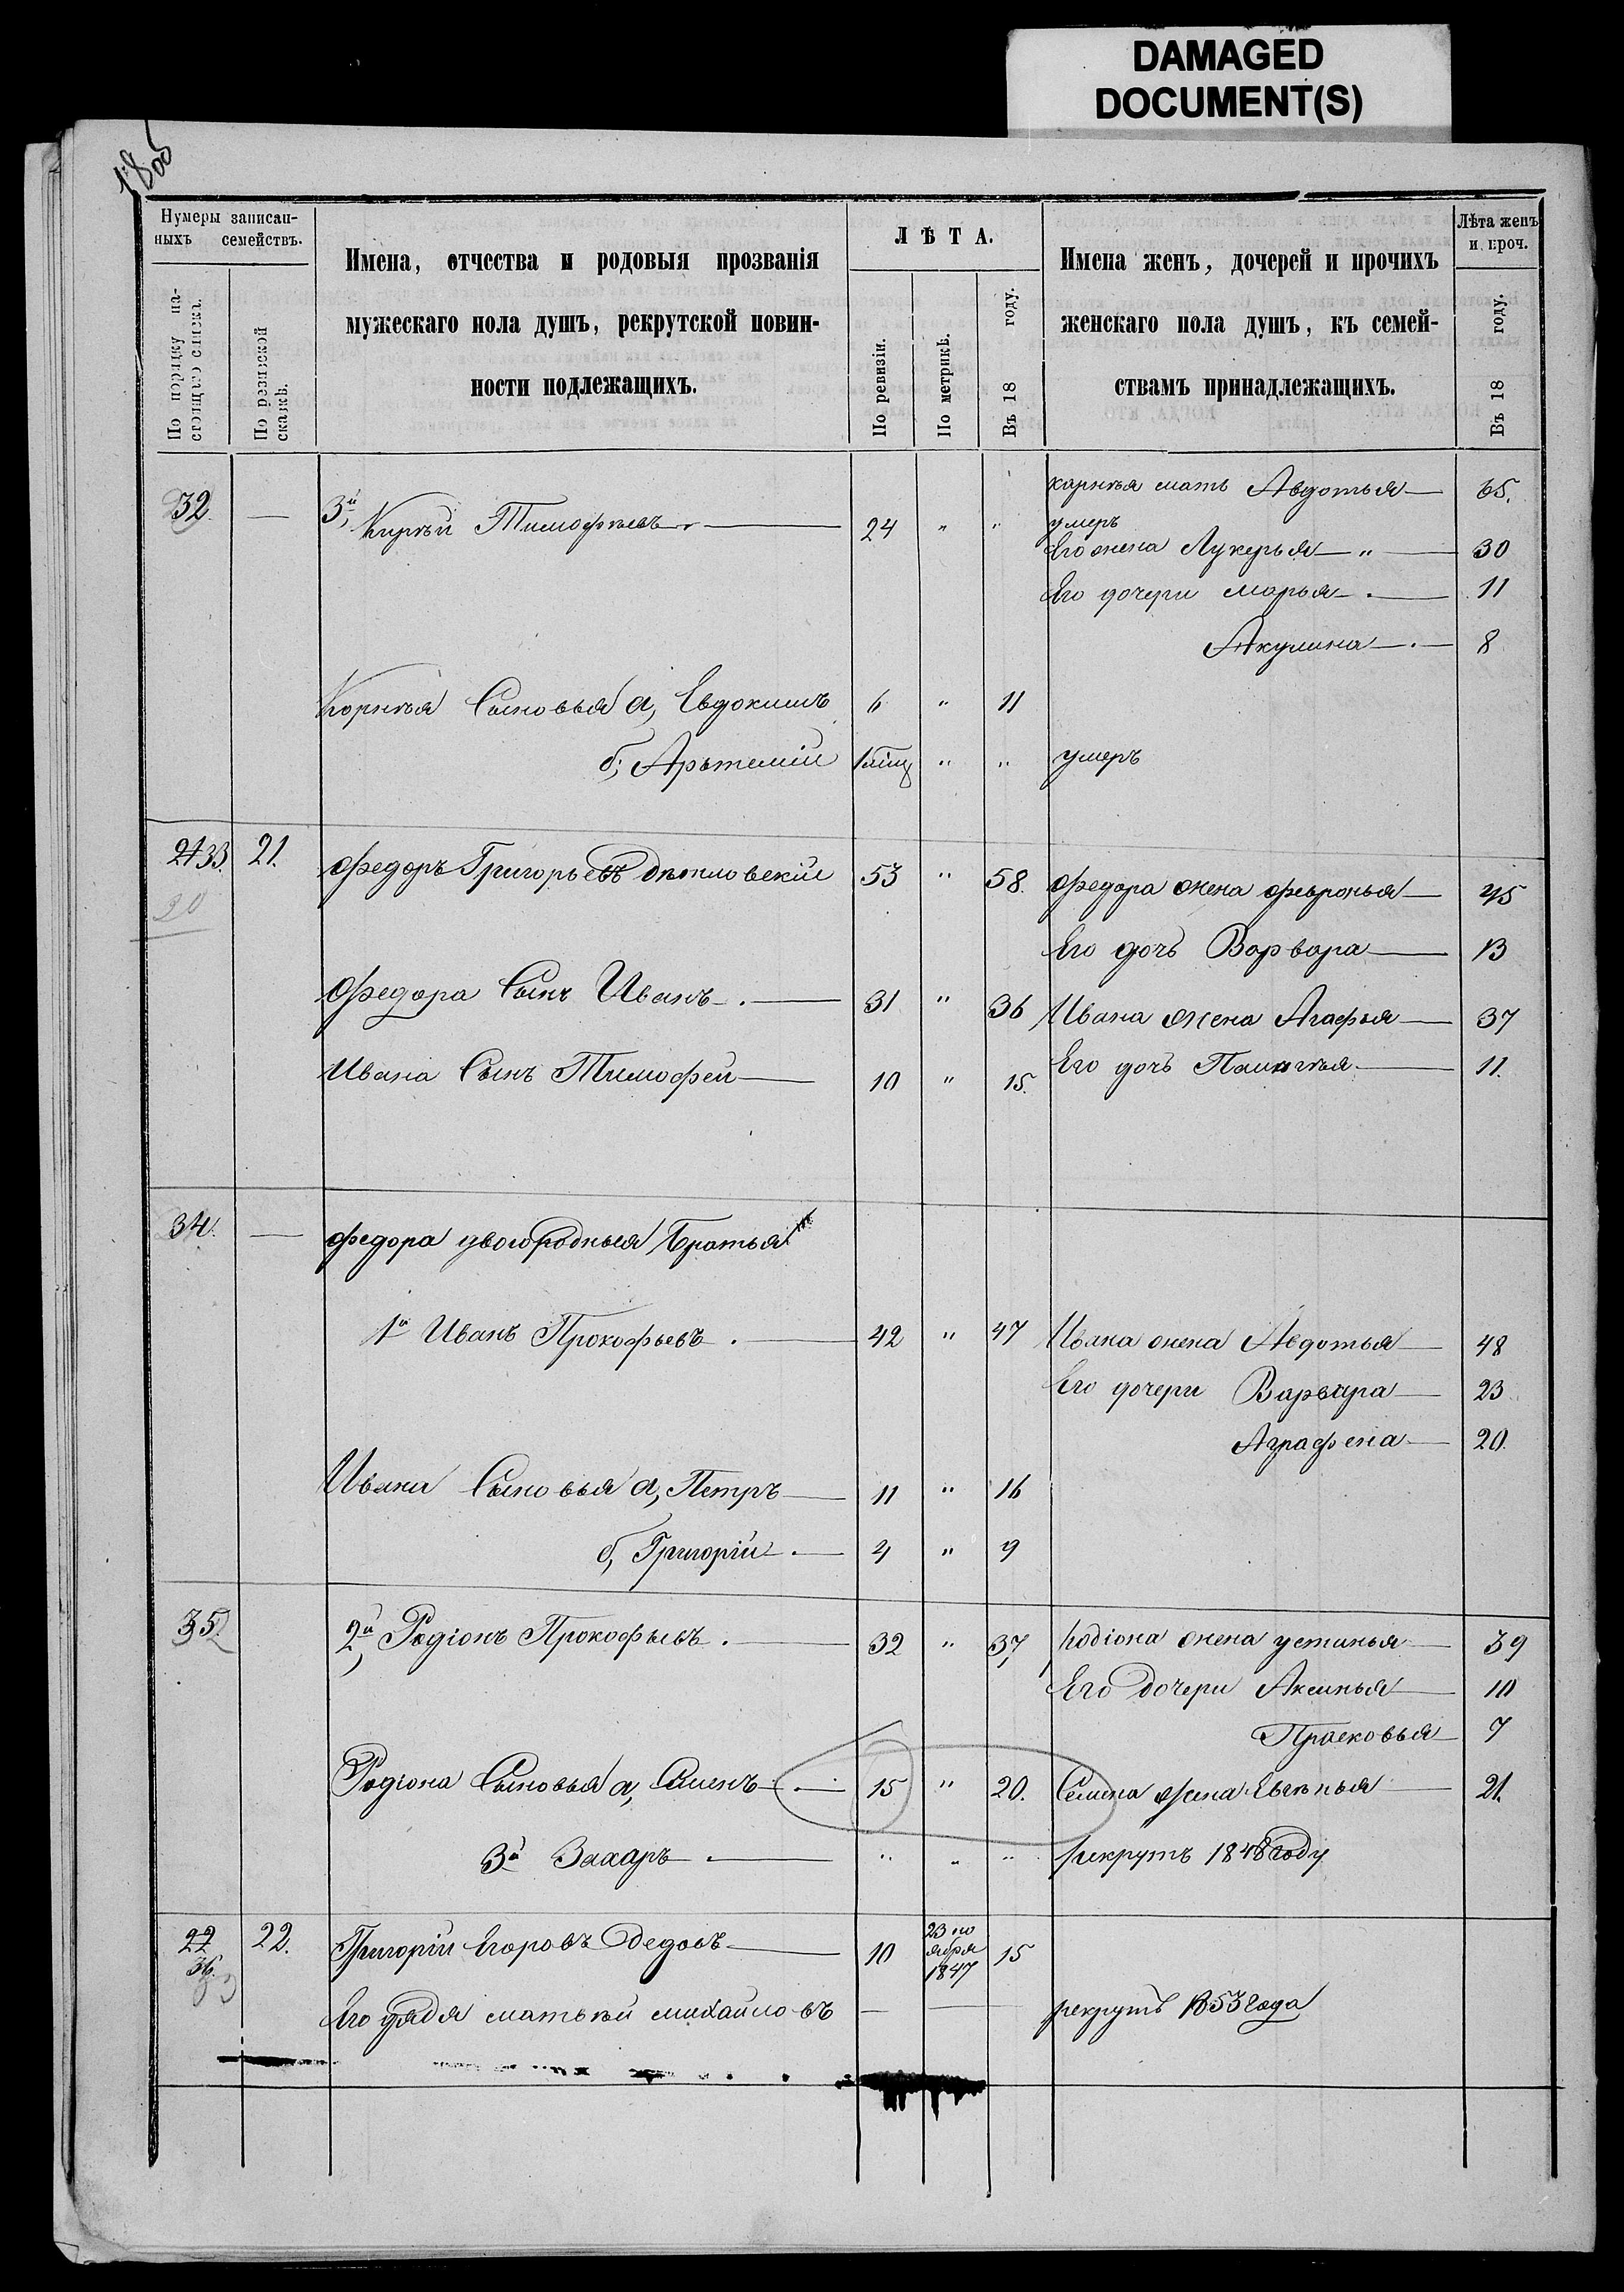 DAMAGED
DOCUMENT(S)
Нумеры записан-
ныхъ семействъ.
По порядку на-
стоящаго списка.
По ревизской
сказкѣ.
Имена, отчества и родовыя прозванія
мужескаго пола душъ, рекрутской повин-
ности подлежащихъ.
ЛѢТА.
По ревизіи.
По метрикѣ.
Въ 18 году.
Имена женъ, дочерей и прочихъ
женскаго пола душъ, къ семей-
ствамъ принадлежащихъ.
Лѣта женъ
и проч.
Въ 18 году.
мать Авдотья 65.
32. — 3й Тимофѣевъ 24 " " умеръ
Его жена Лукерья " 30
Его дочери Марья 11
Акулина 8
Корнѣя Сыновья а, Евдокимъ 6 " 11
б, Артемій " " умеръ
21 33. 21. Федоръ Григорьевъ 53 " 58. Федора жена Февронья 45
20
Его дочь Варвара 13
Федора Сынъ Иванъ 31 " 36 Ивана жена Агафья 37
Ивана Сынъ Тимофей 10 " 15. Его дочь 11.
34. — Федора двоюродныя Братья
1й Иванъ Прокофьевъ 42 " 47 Ивана жена Авдотья 48
Его дочери Варвара 23
Аграфена 20.
Ивана Сыновья а, Петръ 11 " 16
б, Григорій 4 " 9
35. 2й, Родіонъ Прокофьевъ 32 " 37, Родіона жена устинья 39
Его Дочери Аксинья 10
Прасковья 7
Родіона Сыновья а, Семенъ 15 " 20. Семена жена 21.
3й Захаръ " " " рекрутъ 1848 году
22 36. 22. Григорій Егоровъ Дедовъ 10 23 но
ября
1847 15
Его дядя матвѣй михайловъ — — рекрутъ 1853 года